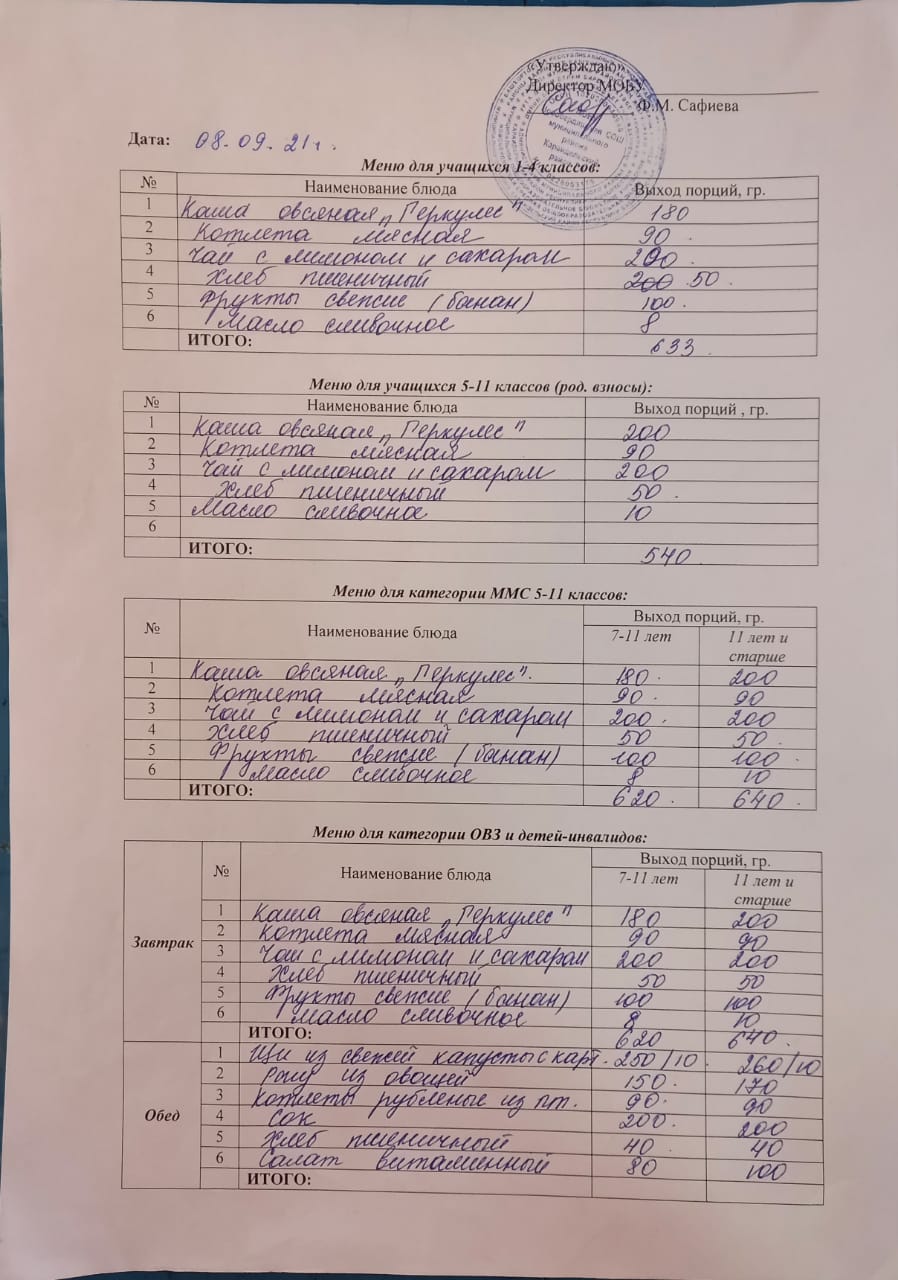 «Утверждаю»
Директор МОБУ
Ф.М. Сафиева
Дата: 08.09.21г.
Меню для учащихся 1-4 классов:
№ Наименование блюда Выход порций, гр.
1 Каша овсяная „Геркулес" 180
2 Котлета мясная 90
3 Чай с лимоном и сахаром 200
4 Хлеб пшеничный 200 50
5 Фрукты свежие (банан) 100
6 Масло сливочное 8
ИТОГО: 633
Меню для учащихся 5-11 классов (род. взносы):
№ Наименование блюда Выход порций , гр.
1 Каша овсяная „Геркулес" 200
2 Котлета мясная 90
3 Чай с лимоном и сахаром 200
4 Хлеб пшеничный 50
5 Масло сливочное 10
6
ИТОГО: 540
Меню для категории ММС 5-11 классов:
№ Наименование блюда Выход порций, гр.
7-11 лет 11 лет и старше
1 Каша овсяная „Геркулес". 180 200
2 Котлета мясная 90 90
3 Чай с лимоном и сахаром 200 200
4 Хлеб пшеничный 50 50
5 Фрукты свежие (банан) 100 100
6 Масло сливочное 8 10
ИТОГО: 620 640
Меню для категории ОВЗ и детей-инвалидов:
№ Наименование блюда Выход порций, гр.
7-11 лет 11 лет и старше
Завтрак
1 Каша овсяная „Геркулес" 180 200
2 Котлета мясная 90 90
3 Чай с лимоном и сахаром 200 200
4 Хлеб пшеничный 50 50
5 Фрукты свежие (банан) 100 100
6 Масло сливочное 8 10
ИТОГО: 620 640
Обед
1 Щи из свежей капусты с карт. 250/10 260/10
2 Рагу из овощей 150 170
3 Котлеты рубленые из пт. 90 90
4 Сок 200 200
5 Хлеб пшеничный 40 40
6 Салат витаминный 80 100
ИТОГО: